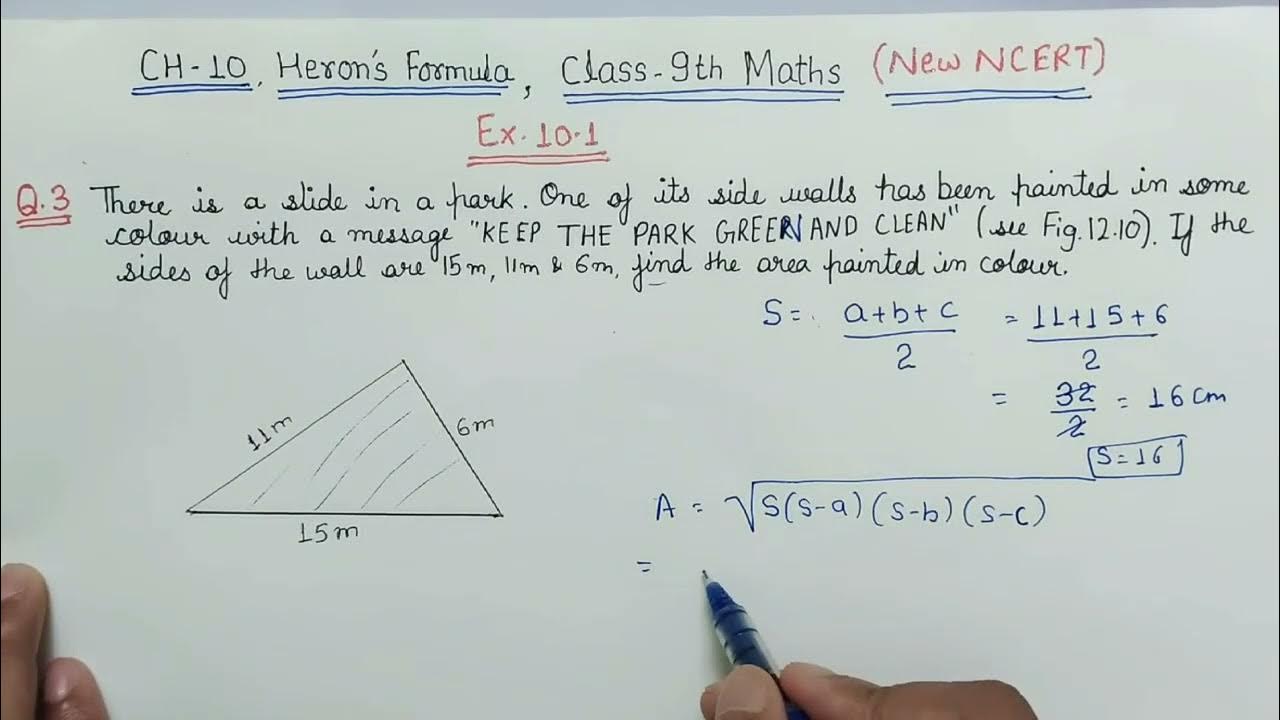 CH-10, Heron's Formula, Class-9th Maths (New NCERT)
Ex. 10.1
Q.3 There is a slide in a park. One of its side walls has been painted in some
colour with a message "KEEP THE PARK GREEN AND CLEAN" (see Fig.12.10). If the
sides of the wall are 15m, 11m & 6m, find the area painted in colour.
S = a+b+c / 2 = 11+15+6 / 2
= 32 / 2 = 16 cm
S = 16
11m
6m
15m
A = √S(S-a)(S-b)(S-c)
=